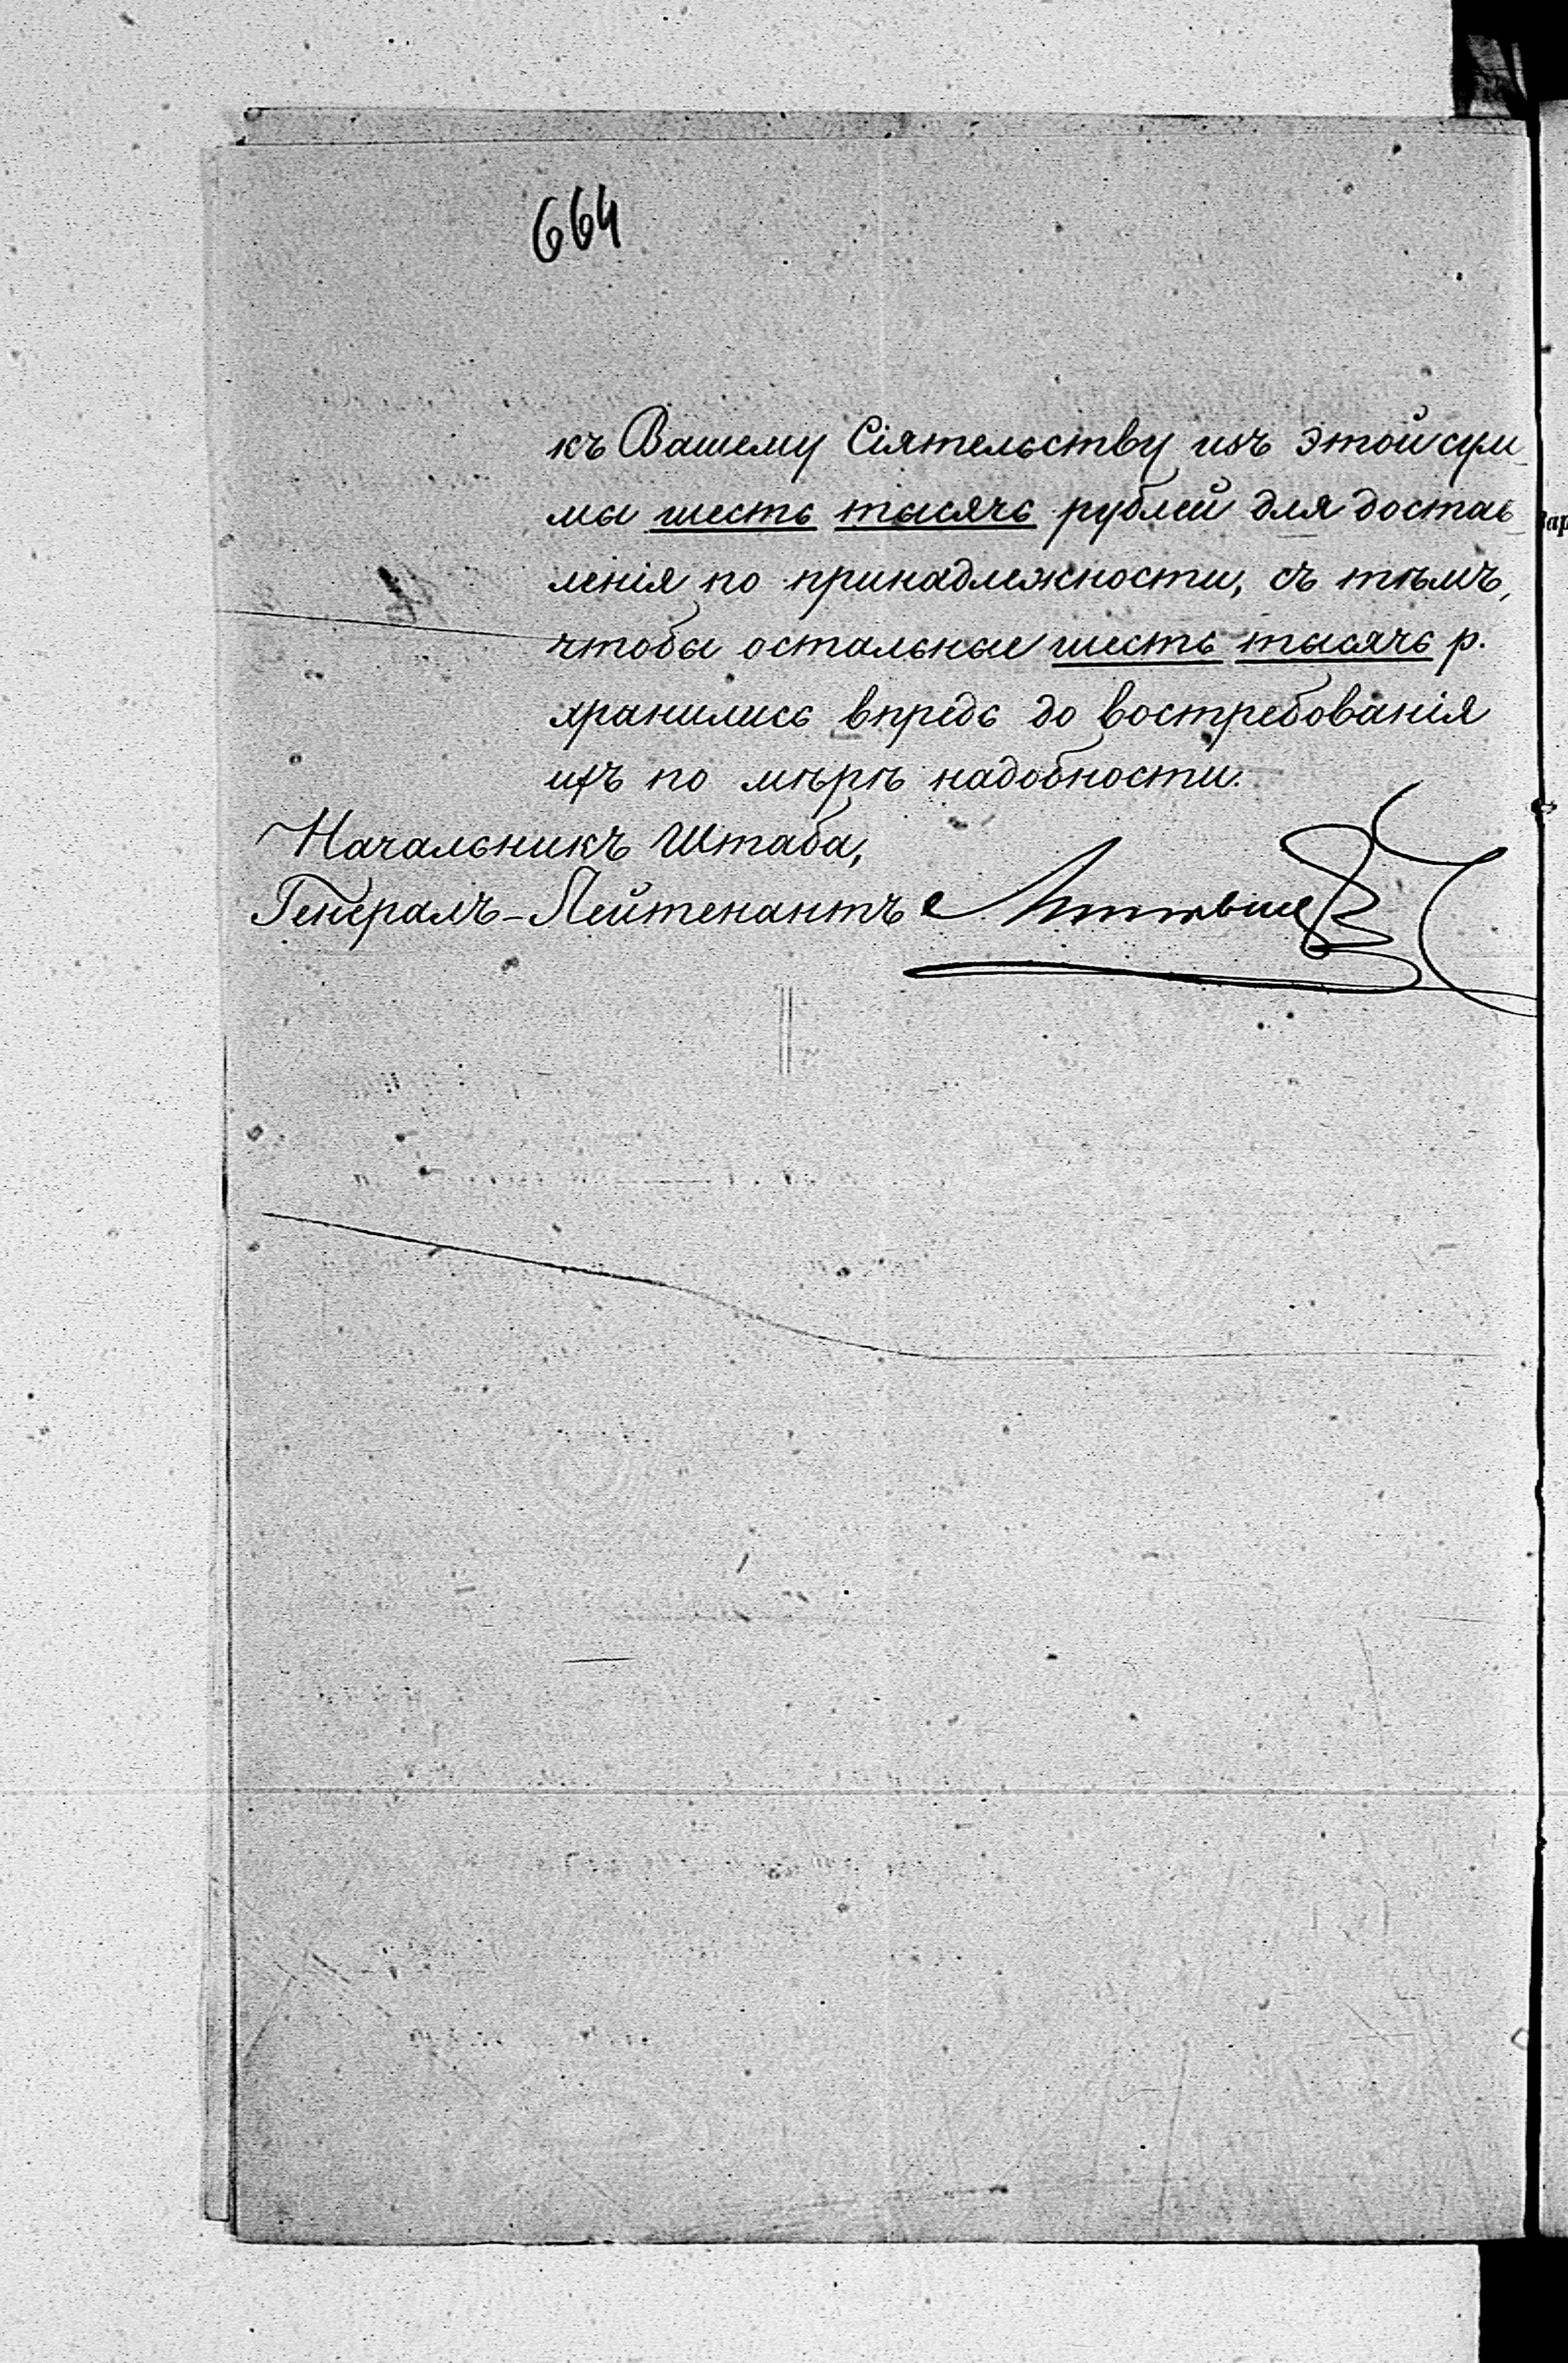 664
къ Вашему Сіятельству изъ этой сум-
мы шесть тысячь рублей для достав-
ленія по принадлежности, съ тѣмъ,
чтобы остальные шесть тысячь р.
хранились впредь до востребованія
ихъ по мѣрѣ надобности.
Начальникъ Штаба,
Генералъ-Лейтенантъ